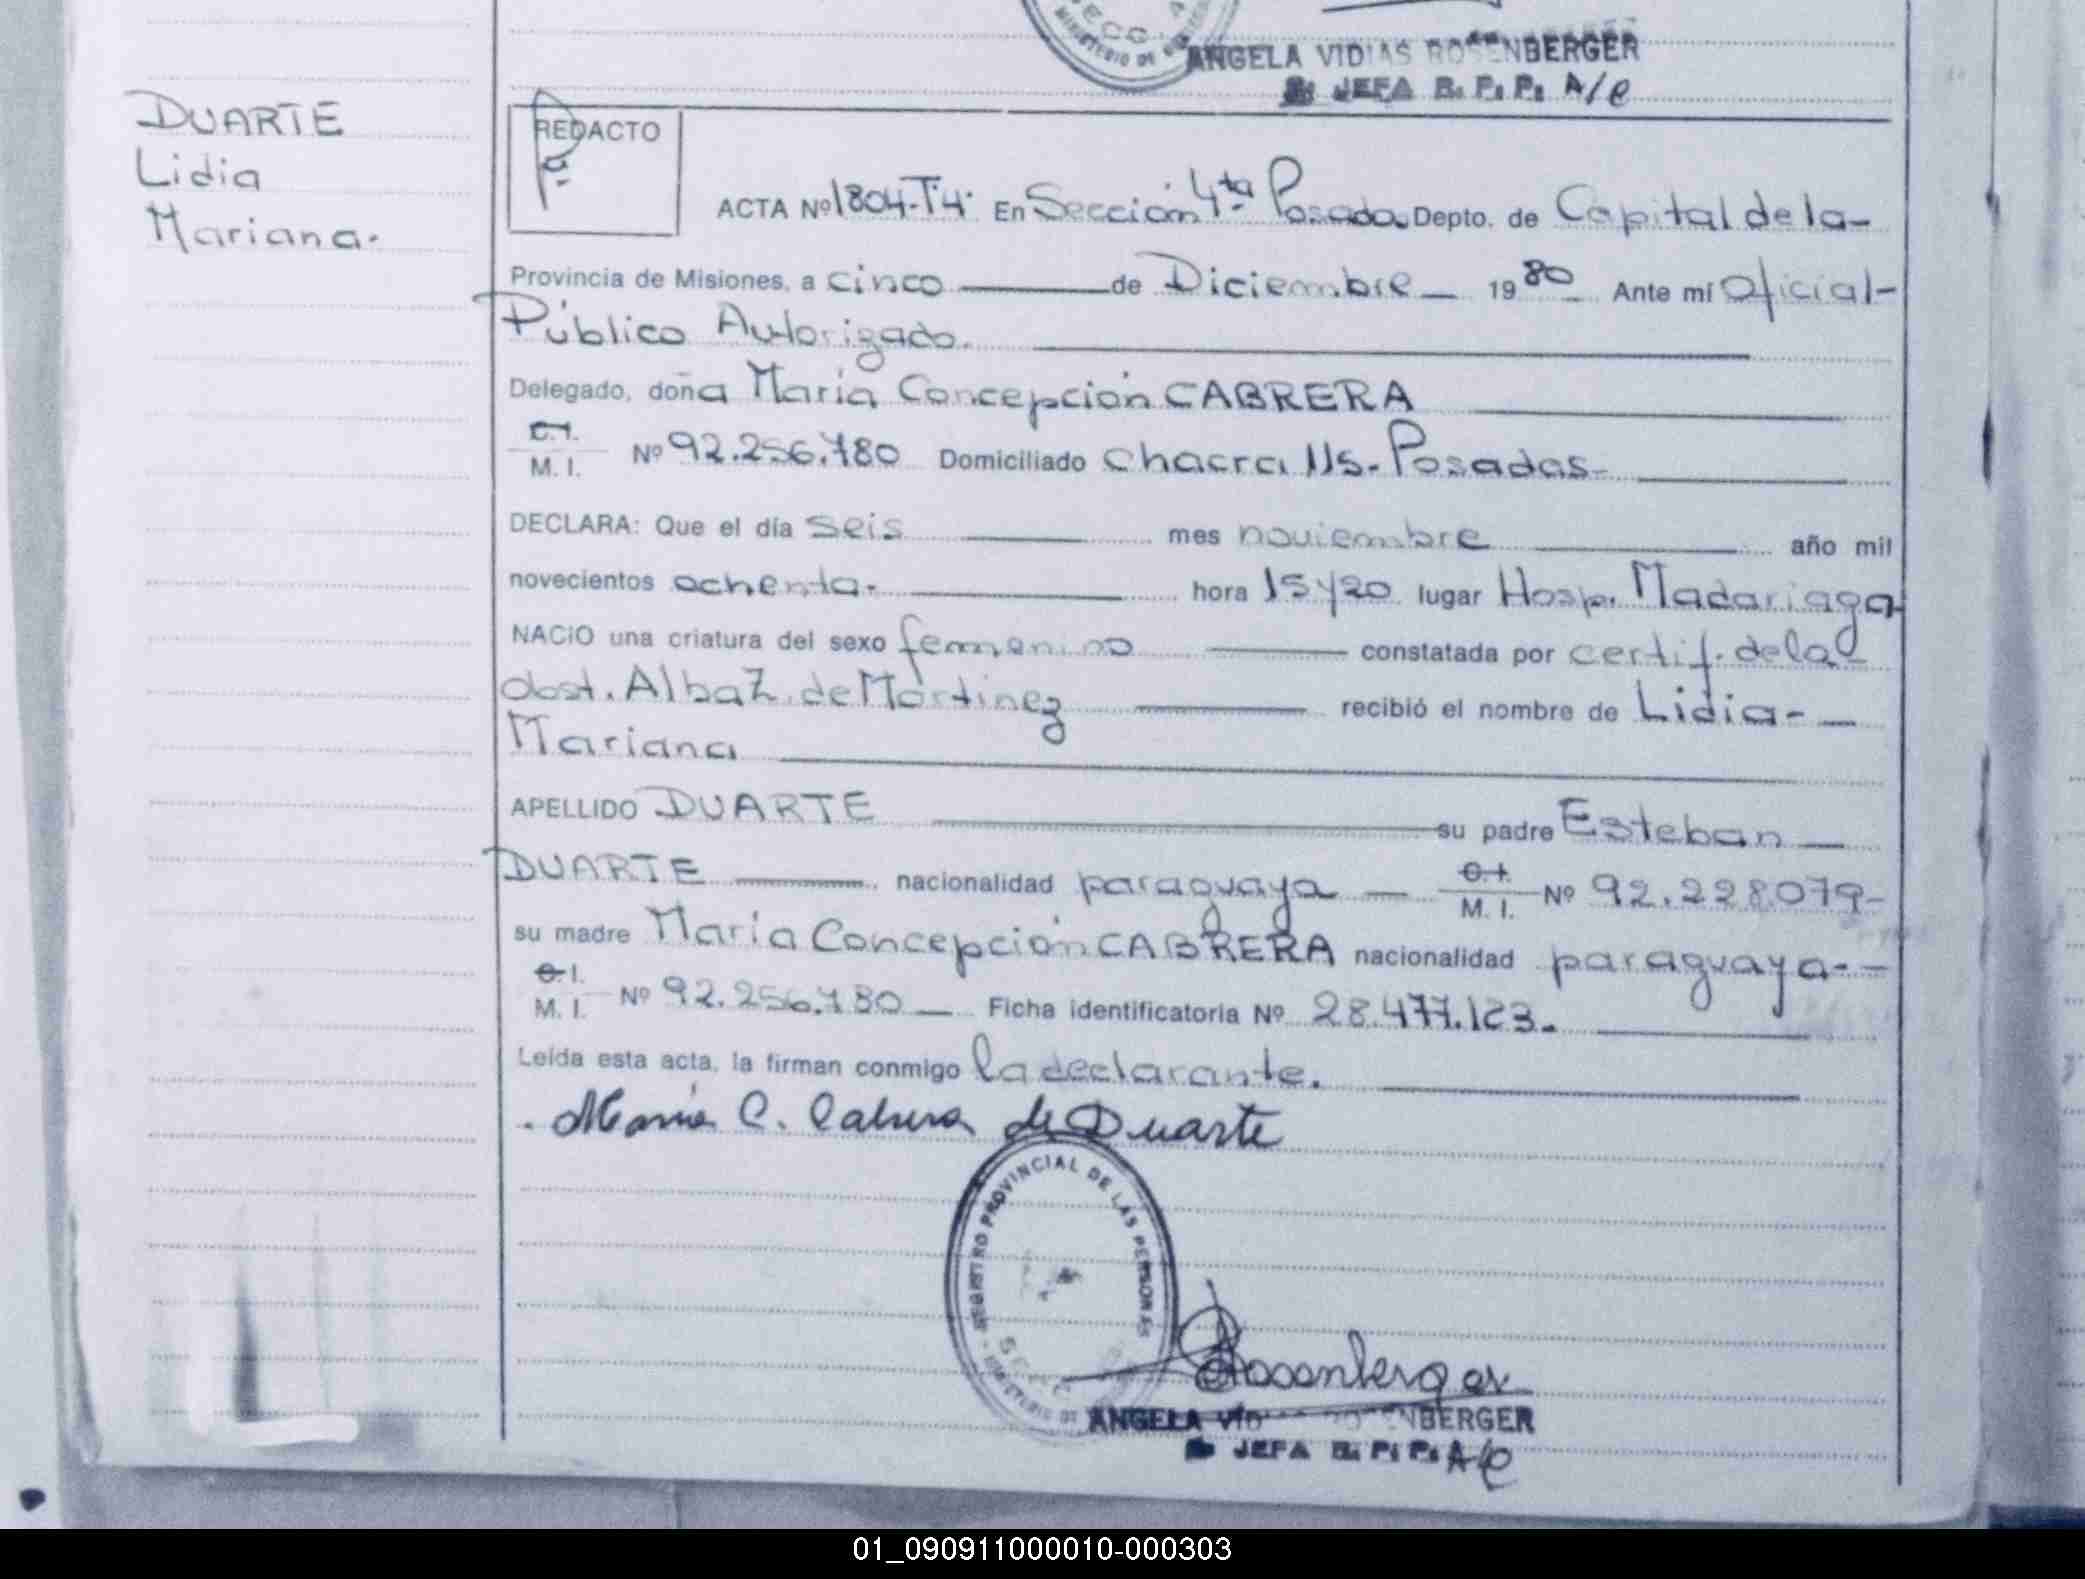 ANGELA VIDIAS ROSENBERGER
JEFA B. P. P. A/C
DUARTE
Lidia
Mariana.
REDACTO
ACTA Nº 1804-T4. En Sección 4ta Posadas Depto. de Capital de la-
Provincia de Misiones, a cinco de Diciembre 1980 Ante mí Oficial-
Público Autorizado.
Delegado, doña María Concepción CABRERA
C.I.
M. I. Nº 92.256.780 Domiciliado Chacra 115. Posadas-
DECLARA: Que el día seis mes noviembre año mil
novecientos ochenta. hora 15y20 lugar Hosp. Madariaga
NACIO una criatura del sexo femenino constatada por certif. de la-
obst. Alba Z. de Martinez recibió el nombre de Lidia-
Mariana
APELLIDO DUARTE su padre Esteban
DUARTE nacionalidad paraguaya C.I.
M. I. Nº 92.228079-
su madre María Concepción CABRERA nacionalidad paraguaya-
C.I.
M. I. Nº 92.256.780 Ficha identificatoria Nº 28.477.123.
Leída esta acta, la firman conmigo la declarante.
María C. Cabrera de Duarte
REGISTRO PROVINCIAL DE LAS PERSONAS
MINISTERIO DE
Rosenberger
ANGELA VID ROSENBERGER
JEFA B. P. P. A/C
01_090911000010-000303